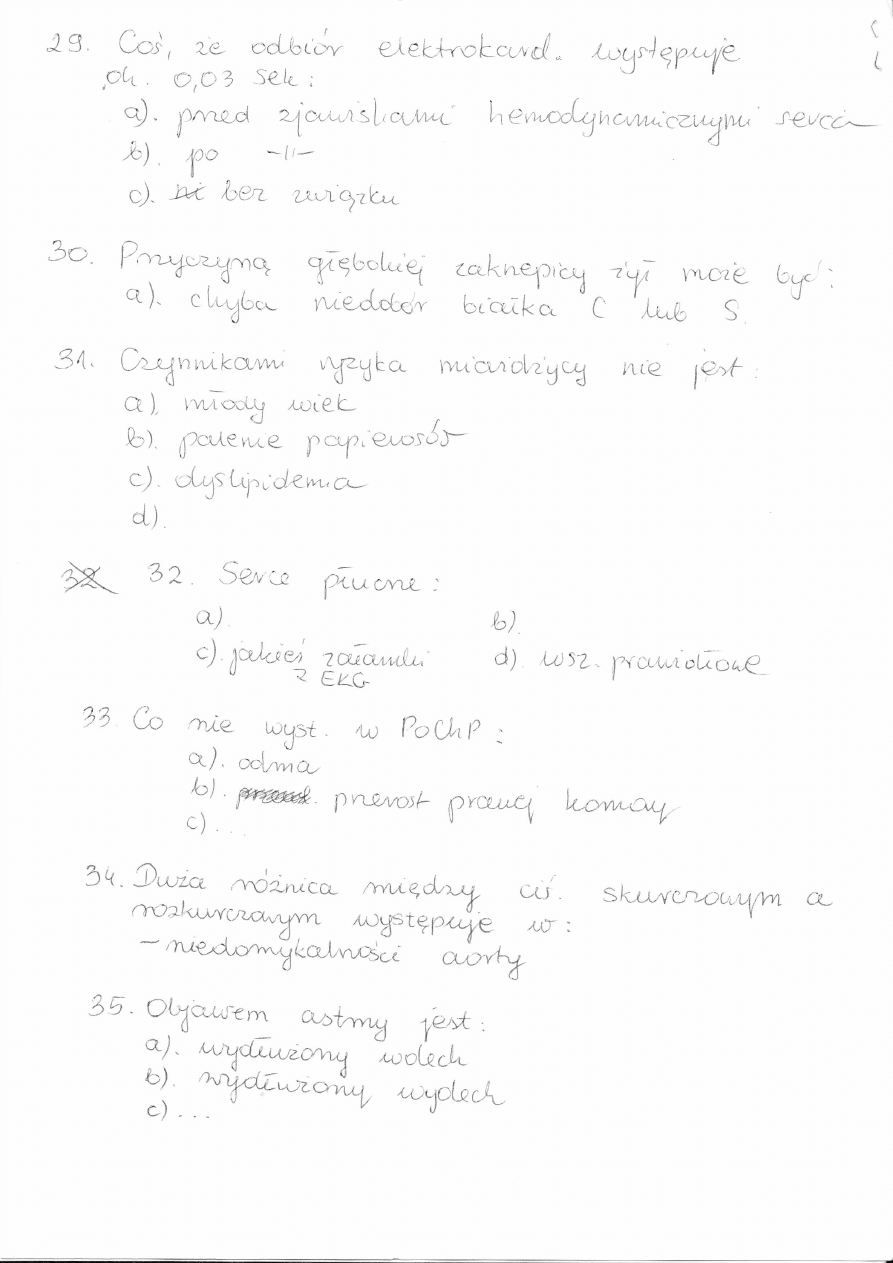 29. Coś, że odbiór elektrokard. występuje
ok. 0,03 sek:
a). przed zjawiskami hemodynamicznymi serca
b). po -||-
c). bez związku
30. Przyczyną głębokiej zakrzepicy żył może być:
a). chyba niedobór białka C lub S
31. Czynnikami ryzyka miażdżycy nie jest:
a). młody wiek
b). palenie papierosów
c). dyslipidemia
d).
32 32. Serce płucne:
a). b).
c). jakieś załamki d). wsz. prawidłowe
z EKG
33. Co nie wyst. w POChP:
a). odma
b). przerost prawej komory
c) ...
34. Duża różnica między ciś. skurczowym a
rozkurczowym występuje w:
- niedomykalności aorty
35. Objawem astmy jest:
a). wydłużony wdech
b). wydłużony wydech
c) ...